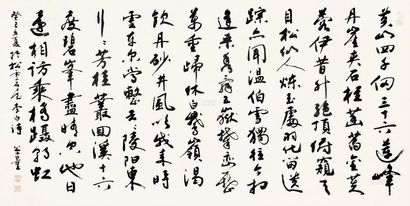 黃山四千仞三十二蓮峰
丹崖夾石柱菡萏金芙
蓉伊昔升絕頂俯窺天
目松仙人煉玉處羽化留遺
踪亦聞溫伯雪獨往今相
逢采秀辭五嶽攀巖歷
萬重歸休白鵝嶺渴
飲丹砂井鳳吹我來時
雲車爾當整去去陵陽東
行行芳桂叢回溪十六
度碧峰盡晴空他日
還相訪乘橋躡彩虹
癸巳立夏於松 李白詩